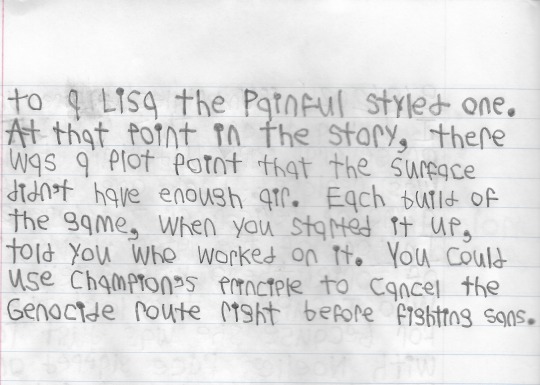 to a Lisa the Painful styled one.
At that point in the story, there
was a plot point that the surface
didn't have enough air. Each build of
the game, when you started it up,
told you who worked on it. You could
use Champion's principle to cancel the
Genocide route right before fighting sans.